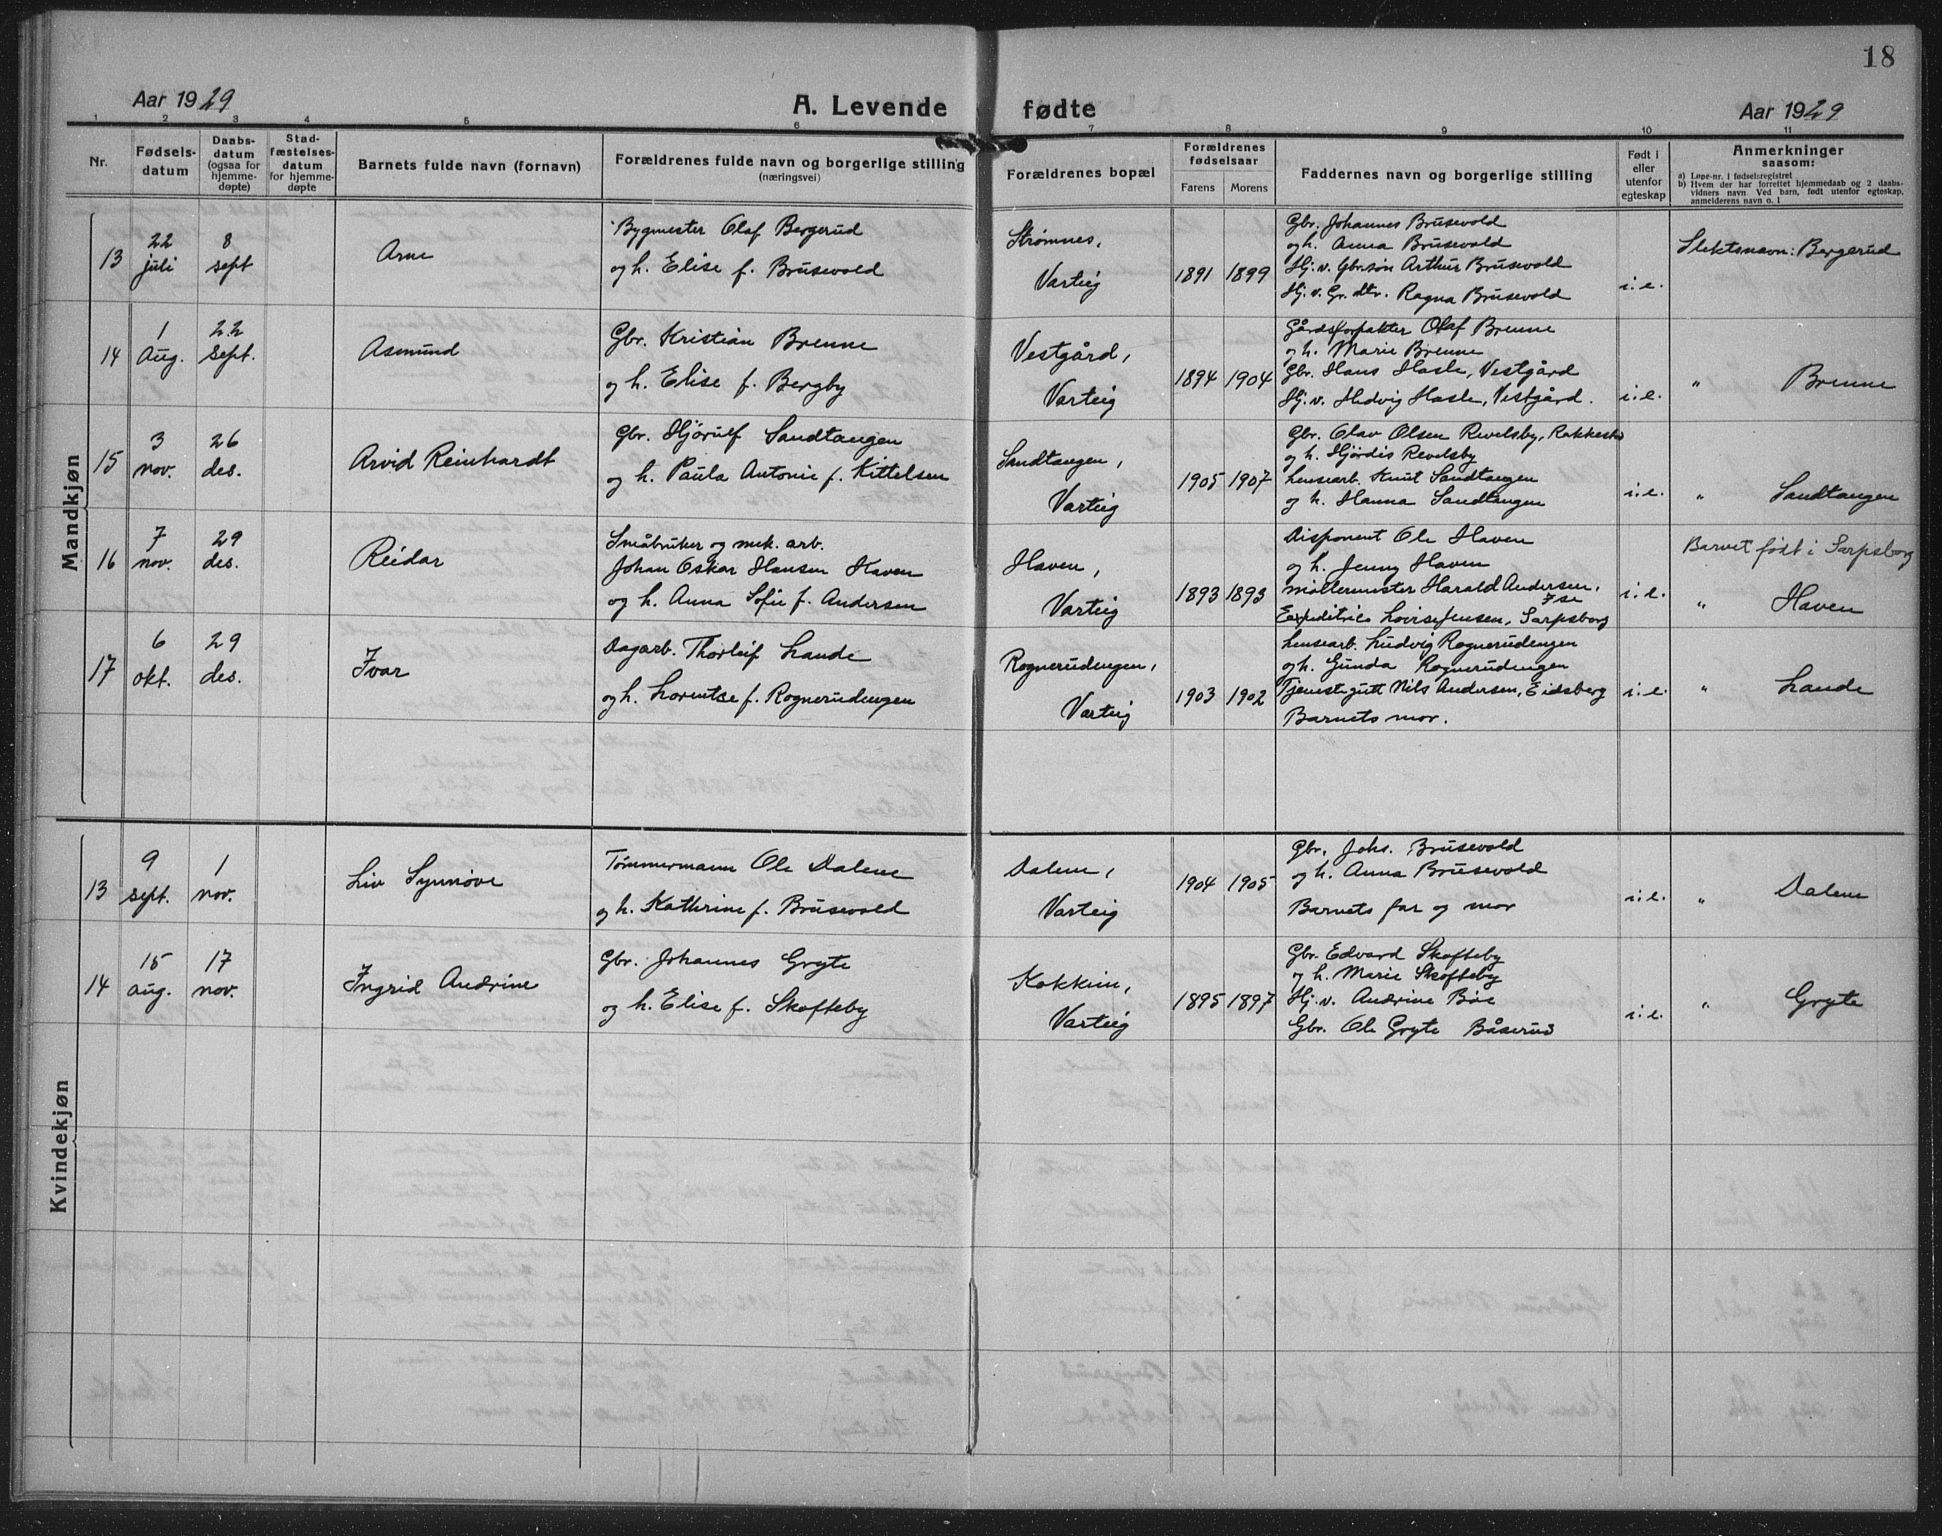 18
Aar 1929
A. Levende fødte
Aar 1929
1 2 3 4 5 6 7 8 9 10 11
Nr.
Fødsels-
datum
Daabs-
datum
(ogsaa for
hjemme-
døpte)
Stad-
fæstelses-
datum
for hjemme-
døpte
Barnets fulde navn (fornavn)
Forældrenes fulde navn og borgerlige stilling
(næringsvei)
Forældrenes bopæl
Forældrenes
fødselsaar
Farens Morens
Faddernes navn og borgerlige stilling
Født i
eller
utenfor
egteskap
Anmerkninger
saasom:
a) Løpe-nr. i fødselsregistret
b) Hvem der har forrettet hjemmedaab og 2 daabs-
vidners navn. Ved barn, født utenfor egteskap,
anmelderens navn o. l
Mandkjøn
13
22
juli
8
sept
Arne
Bygmester Olaf Bergerud
og h. Elise f. Brusevold
Strømnes,
Varteig
1891 1899
Gbr. Johannes Brusevold
og h. Anna Brusevold
Hj. v. Gbr.søn Arthur Brusevold
Hj. v. Gr. dtr. Ragna Brusevold
i. e.
Slektsnavn: Bergerud
14
1
Aug.
22
sept.
Asmund
Gbr. Kristian Brenne
og h. Elise f. Bergby
Vestgård,
Varteig
1894 1904
Gårdsforpakter Olaf Brenne
og h. Marie Brenne
Gbr. Hans Hasle, Vestgård
Hj. v. Hedvig Hasle, Vestgård.
i. e.
" Brenne
15
3
nov.
26
des.
Arvid Reinhardt
Gbr. Hjørulf Sandtangen
og h. Paula Antonie f. Kittelsen
Sandtangen,
Varteig
1905 1907
Gbr. Olav Olsen Revelsby, Rakkestad
og h. Hjørdis Revelsby
Lensearb. Knut Sandtangen
og h. Hanna Sandtangen
i. e.
" Sandtangen
16
7
nov.
29
des.
Reidar
Småbruker og mek. arb.
Johan Oskar Hansen Haven
og h. Anna Sofie f. Andersen
Haven,
Varteig
1893 1893
Disponent Ole Haven
og h. Jenny Haven
møllermester Harald Andersen,
Ise
Expeditrice Lovise Jensen, Sarpsborg
i. e.
Barnet født i Sarpsborg
" Haven
17
6
okt.
29
des.
Ivar
Dagarb. Thorleif Lande
og h. Lorentse f. Rognerudengen
Rognerudengen,
Varteig
1903 1902
Lensearb. Ludvig Rognerudengen
og h. Gunda Rognerudengen
Tjenestegutt Nils Andersen, Eidsberg
Barnets mor.
i. e.
" Lande
Kvindekjøn
13
9
sept.
1
nov.
Liv Synnøve
Tømmermann Ole Dalene
og h. Kathrine f. Brusevold
Dalene,
Varteig
1904 1905
Gbr. Johs. Brusevold
og h. Anna Brusevold
Barnets far og mor
i. e.
" Dalene
14
15
aug.
17
nov.
Ingrid Andrine
Gbr. Johannes Gryte
og h. Elise f. Skofteby
Kokkim,
Varteig
1895 1897
Gbr. Edvard Skofteby
og h. Marie Skofteby
Hj. v. Andrine Bøe
Gbr. Ole Gryte Båserud
i. e.
" Gryte